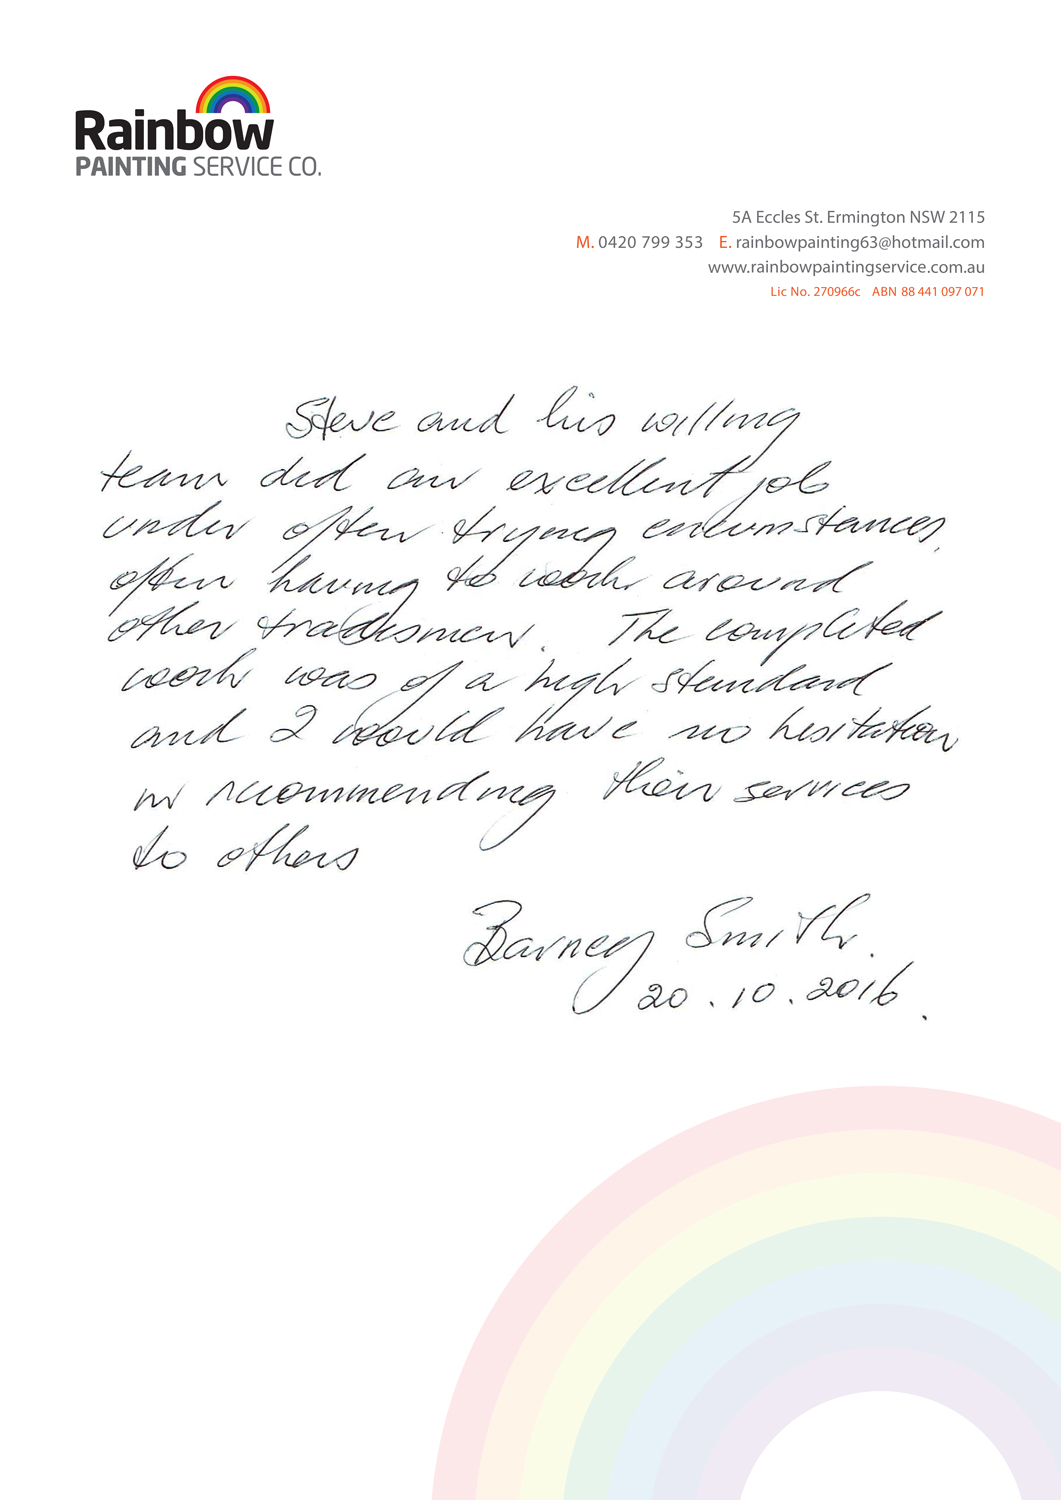 Rainbow
PAINTING SERVICE CO.
5A Eccles St. Ermington NSW 2115
M. 0420 799 353 E. rainbowpainting63@hotmail.com
www.rainbowpaintingservice.com.au
Lic No. 270966c ABN 88 441 097 071
Steve and his willing
team did an excellent job
under often trying circumstances,
often having to work around
other tradesmen. The completed
work was of a high standard
and I would have no hesitation
in recommending their services
to others
Barney Smith.
20.10.2016.